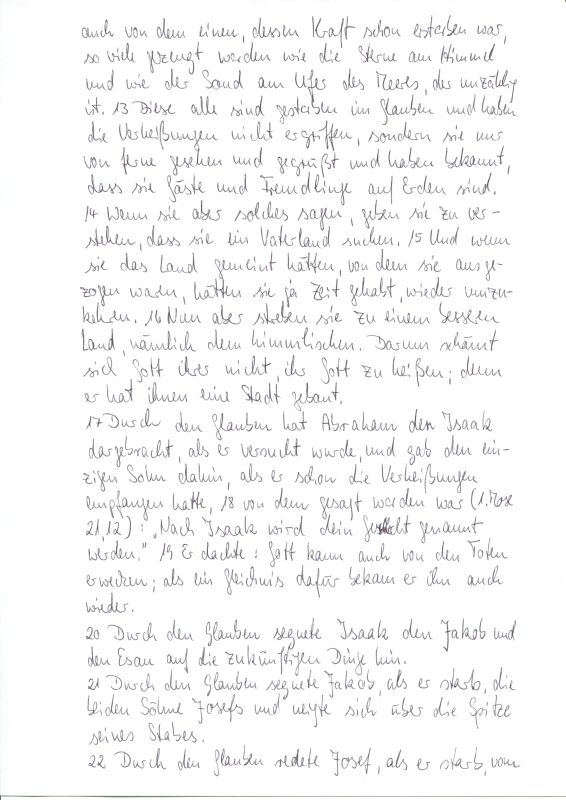 auch von dem einen, dessen Kraft schon erstorben war,
so viele gezeugt worden wie die Sterne am Himmel
und wie der Sand am Ufer des Meeres, der unzählig
ist. 13 Diese alle sind gestorben im Glauben und haben
die Verheißungen nicht ergriffen, sondern sie nur
von ferne gesehen und gegrüßt und haben bekannt,
dass sie Gäste und Fremdlinge auf Erden sind.
14 Wenn sie aber solches sagen, geben sie zu ver-
stehen, dass sie ein Vaterland suchen. 15 Und wenn
sie das Land gemeint hätten, von dem sie ausge-
zogen waren, hätten sie ja Zeit gehabt, wieder umzu-
kehren. 16 Nun aber streben sie zu einem besseren
Land, nämlich dem himmlischen. Darum schämt
sich Gott ihrer nicht, ihr Gott zu heißen; denn
er hat ihnen eine Stadt gebaut.
17 Durch den Glauben hat Abraham den Isaak
dargebracht, als er versucht wurde, und gab den ein-
zigen Sohn dahin, als er schon die Verheißungen
empfangen hatte, 18 von dem gesagt worden war (1. Mose
21,12): „Nach Isaak wird dein genannt
werden." 19 Er dachte: Gott kann auch von den Toten
erwecken; als ein Gleichnis dafür bekam er ihn auch
wieder.
20 Durch den Glauben segnete Isaak den Jakob und
den Esau auf die zukünftigen Dinge hin.
21 Durch den Glauben segnete Jakob, als er starb, die
beiden Söhne Josefs und neigte sich über die Spitze
seines Stabes.
22 Durch den Glauben redete Josef, als er starb, vom